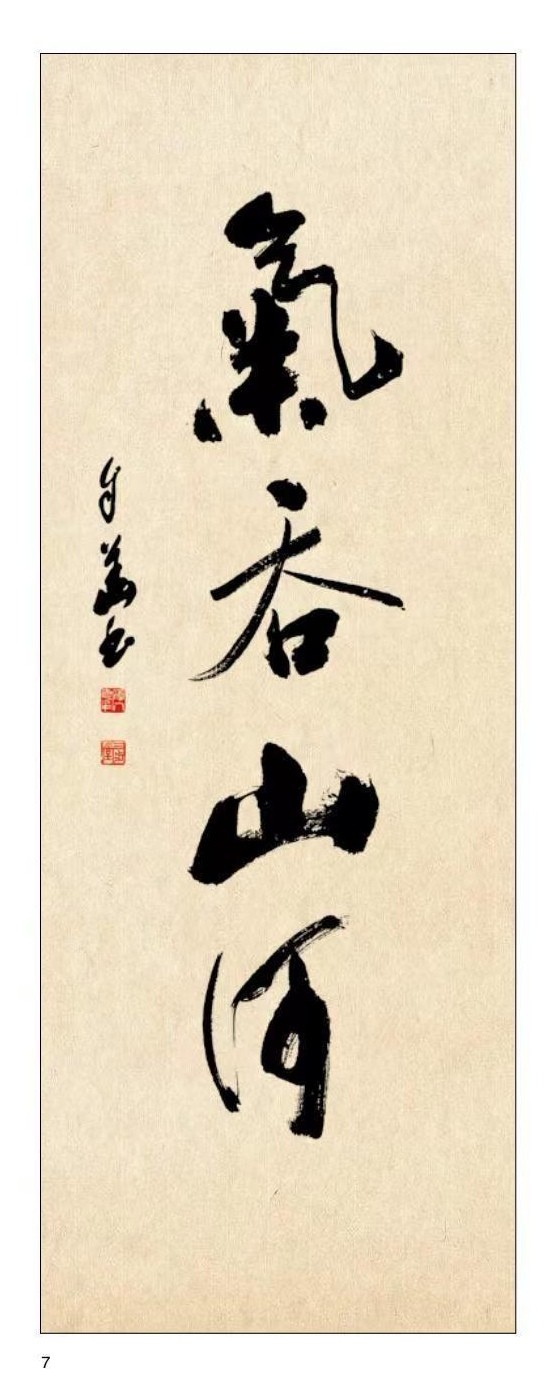 氣吞山河
书
7